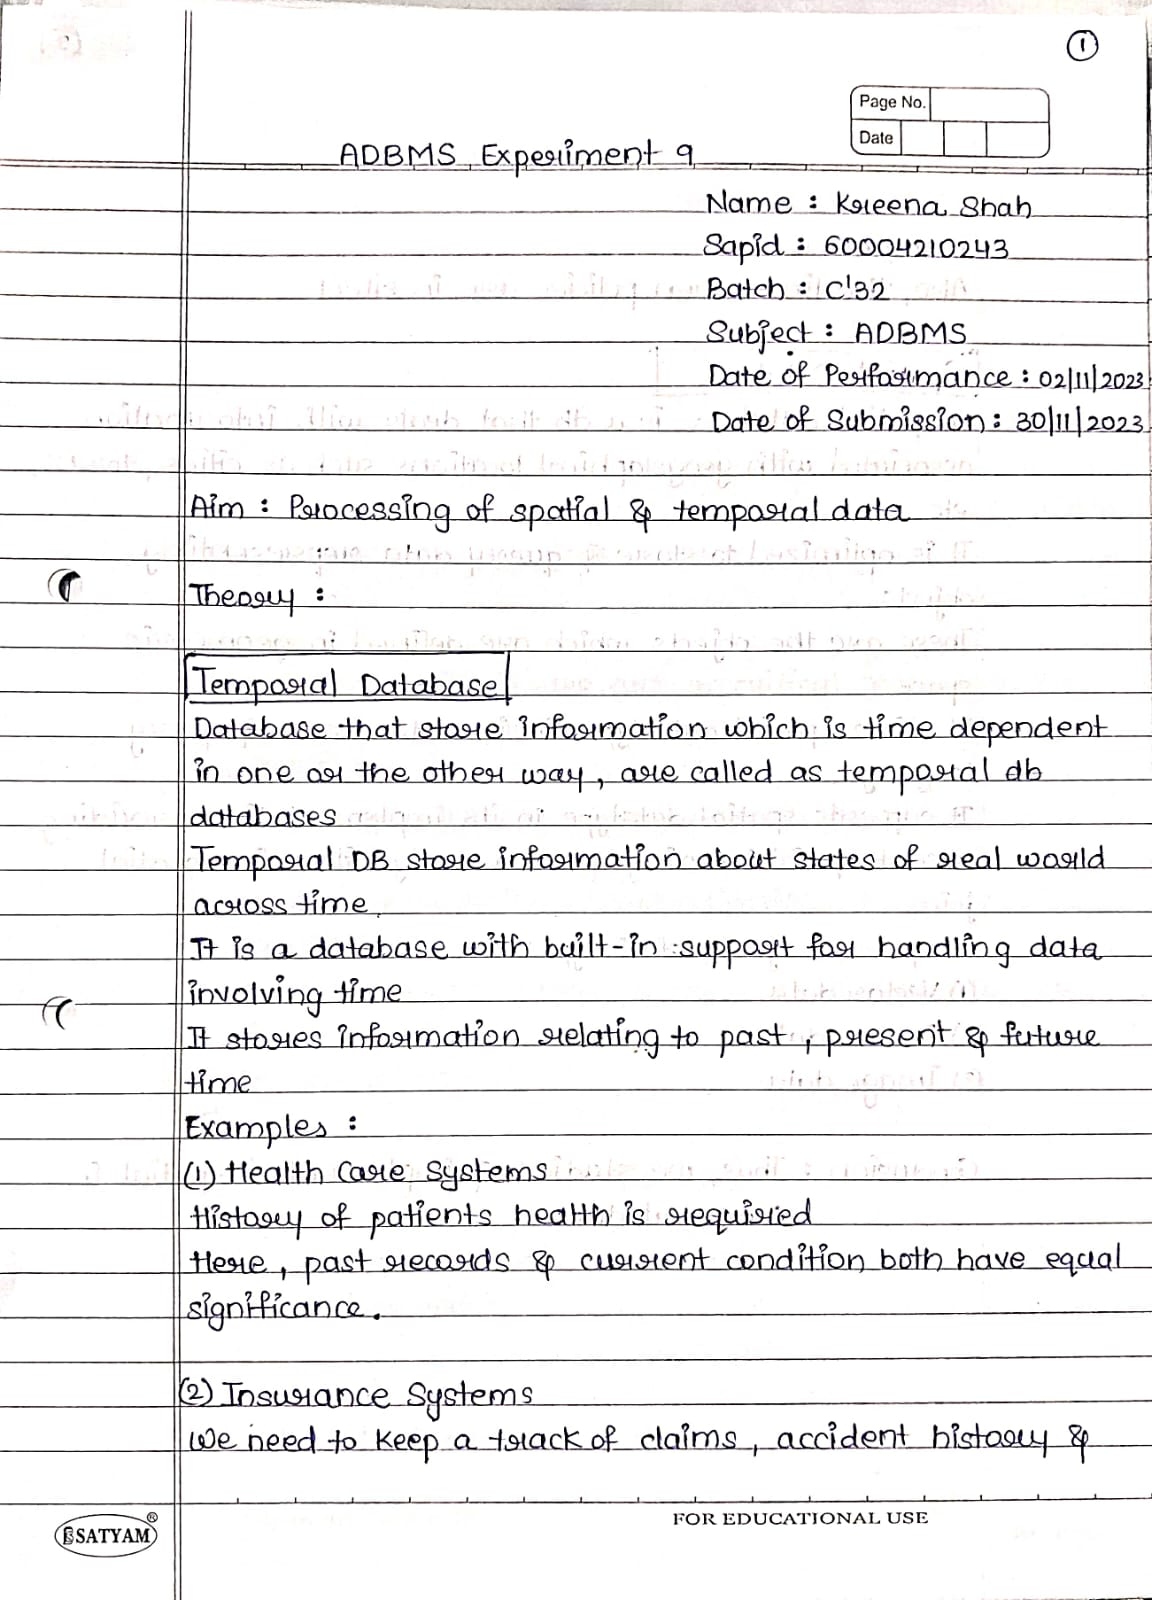 1
Page No.
Date
ADBMS Experiment 9
Name : Kreena Shah
Sapid : 60004210243
Batch : C'32
Subject : ADBMS
Date of Performance : 02/11/2023
Date of Submission : 30/11/2023
Aim : Processing of spatial & temporal data
Theory :
Temporal Database
Database that store information which is time dependent
in one or the other way, are called as temporal db
databases
Temporal DB store information about states of real world
across time
It is a database with built-in support for handling data
involving time
It stores information relating to past, present & future
time
Examples :
(1) Health Care Systems
History of patients health is required
Here, past records & current condition both have equal
significance.
(2) Insurance Systems
We need to keep a track of claims, accident history &
FOR EDUCATIONAL USE
SATYAM®